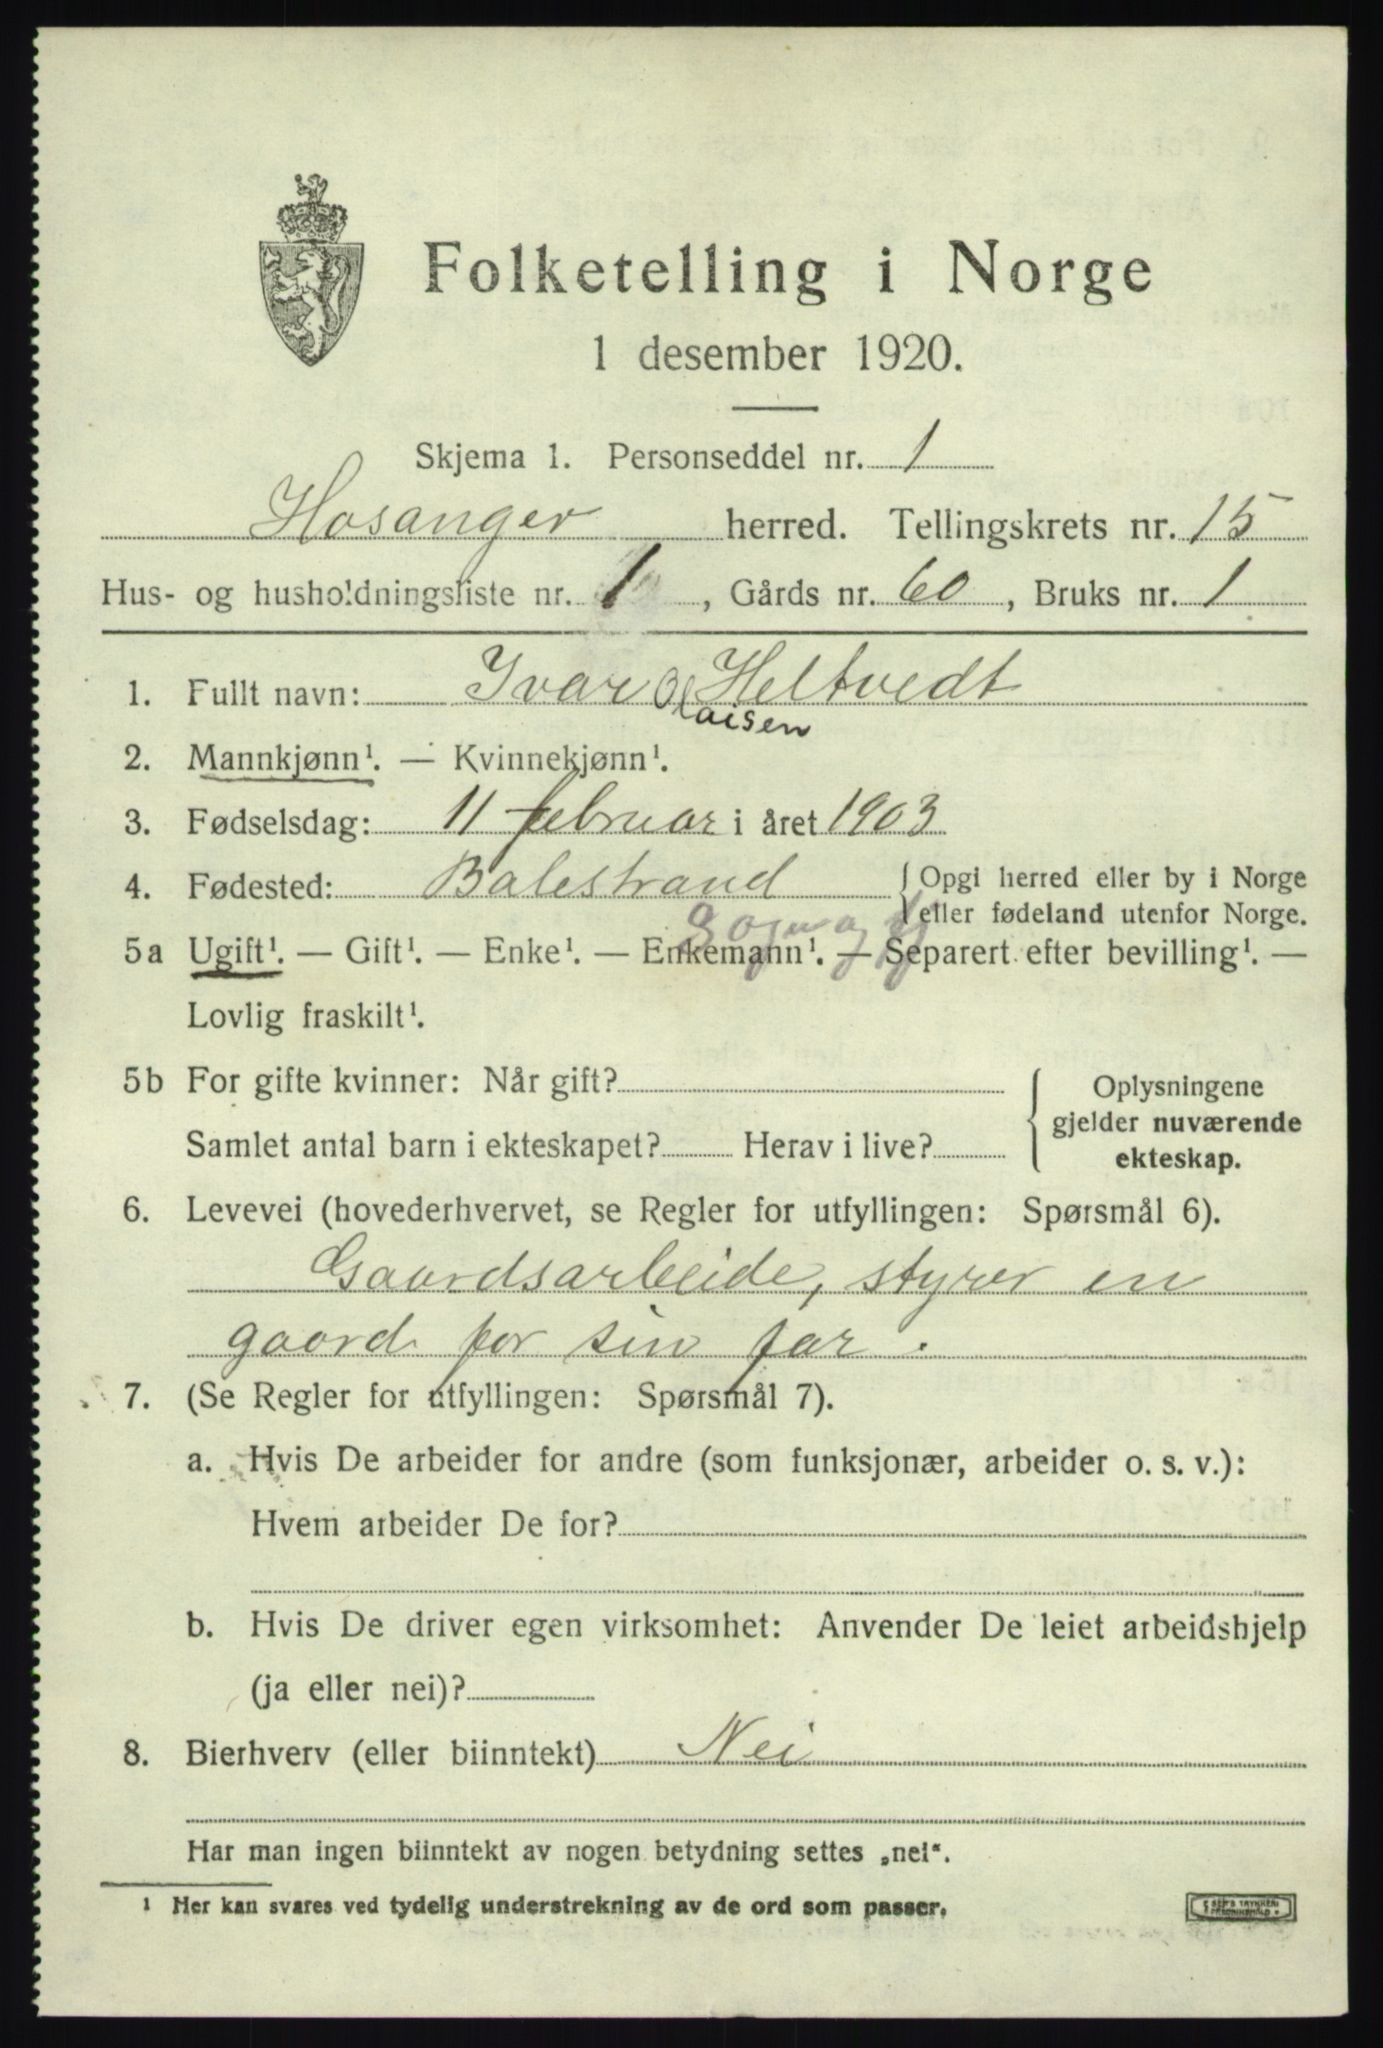 Folketelling i Norge
1 desember 1920.
Skjema 1. Personseddel nr. 1
Hosanger herred. Tellingskrets nr. 15
Hus- og husholdningsliste nr. 1, Gårds nr. 60, Bruks nr. 1
1. Fullt navn: Ivar Olaisen Heltvedt
2. Mannkjønn¹. — Kvinnekjønn¹.
3. Fødselsdag: 11 februar i året 1903
4. Fødested: Balestrand { Opgi herred eller by i Norge
eller fødeland utenfor Norge.
Sogn og Fj
5a Ugift¹. — Gift¹. — Enke¹. — Enkemann¹. — Separert efter bevilling¹. —
Lovlig fraskilt¹.
5b For gifte kvinner: Når gift? { Oplysningene
gjelder nuværende
Samlet antal barn i ekteskapet? Herav i live? ekteskap.
6. Levevei (hovederhvervet, se Regler for utfyllingen: Spørsmål 6).
Gaardsarbeide, styrer en
gaard for sin far.
7. (Se Regler for utfyllingen: Spørsmål 7).
a. Hvis De arbeider for andre (som funksjonær, arbeider o. s. v.):
Hvem arbeider De for?
b. Hvis De driver egen virksomhet: Anvender De leiet arbeidshjelp
(ja eller nei)?
8. Bierhverv (eller biinntekt) Nei
Har man ingen biinntekt av nogen betydning settes „nei“.
1 Her kan svares ved tydelig understrekning av de ord som passer.